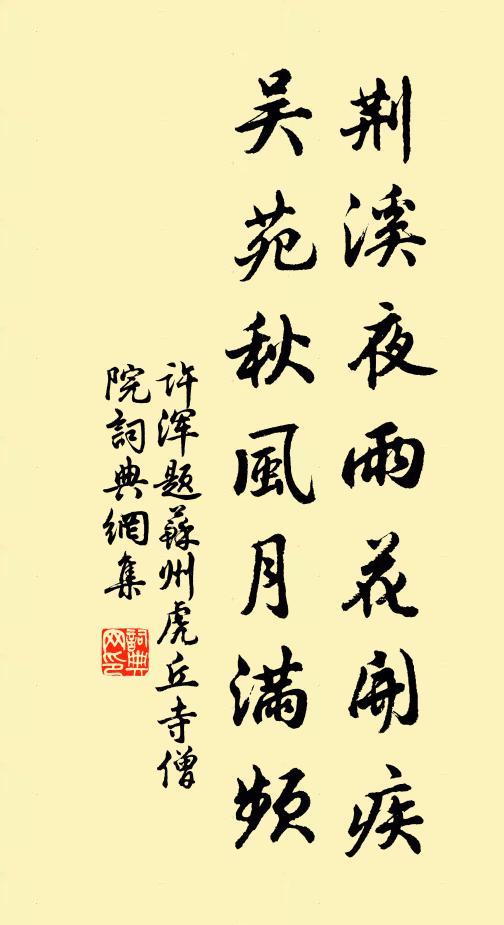 荆溪夜雨花開疾
吴苑秋風月満頻
许渾题蘇州虎丘寺僧
院詞典網集
詞典
网印